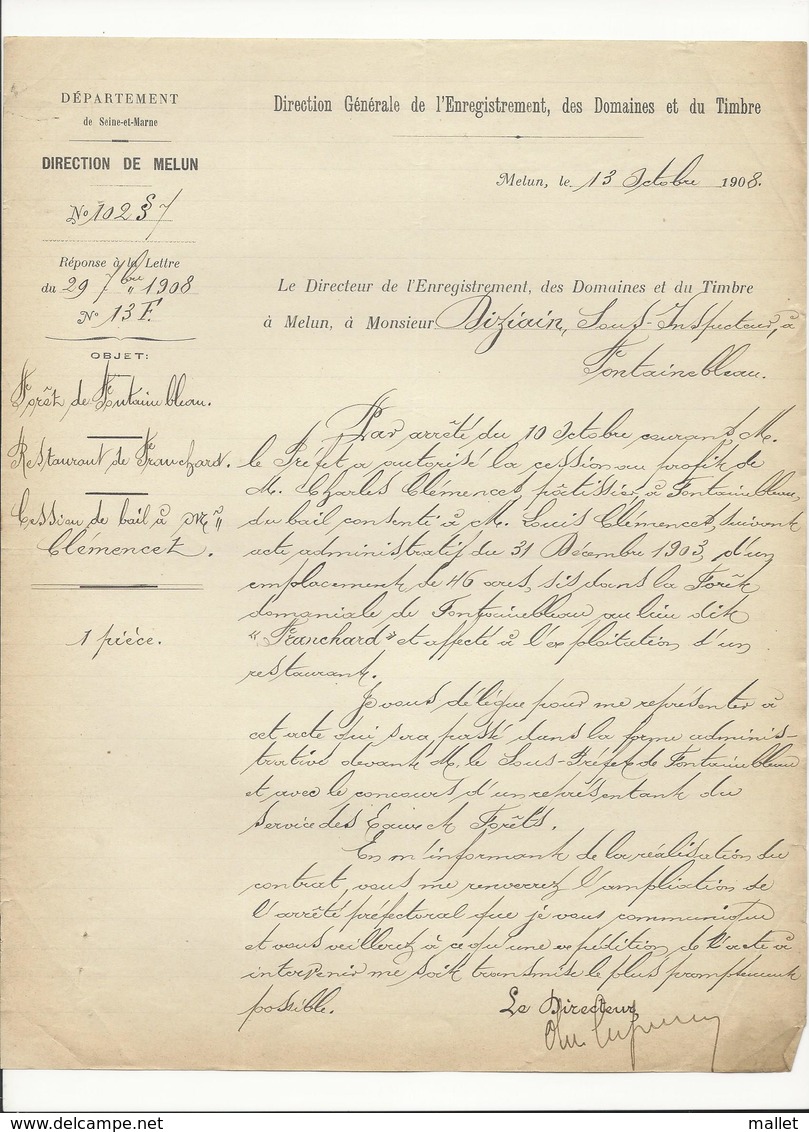 DÉPARTEMENT
de Seine-et-Marne
DIRECTION DE MELUN
No 10257
Réponse à la Lettre
du 29 7bre 1908
No 13 F.
OBJET:
Forêt de Fontainebleau.
Restaurant de Franchard.
Cession de bail à Mr
Clémencet.
1 pièce.
Direction Générale de l'Enregistrement, des Domaines et du Timbre
Melun, le 13 Octobre 1908.
Le Directeur de l'Enregistrement, des Domaines et du Timbre
à Melun, à Monsieur Diziain, Sous-Inspecteur, à
Fontainebleau.
Par arrêté du 10 Octobre courant, M.
le Préfet a autorisé la cession au profit de
M. Charles Clémencet, pâtissier à Fontainebleau,
du bail consenti à M. Louis Clémencet, suivant
acte administratif du 31 Décembre 1903, d'un
emplacement de 46 ares, sis dans la Forêt
domaniale de Fontainebleau, au lieu dit
"Franchard" et affecté à l'exploitation d'un
restaurant.
Je vous délègue pour me représenter à
cet acte qui sera passé dans la forme adminis-
trative devant M. le Sous-Préfet de Fontainebleau
et avec le concours d'un représentant du
service des Eaux et Forêts.
En m'informant de la réalisation du
contrat, vous me renverrez l'ampliation de
l'arrêté préfectoral que je vous communique
et vous veillerez à ce qu'une expédition de l'acte à
intervenir me soit transmise le plus promptement
possible.
Le Directeur,
mallet